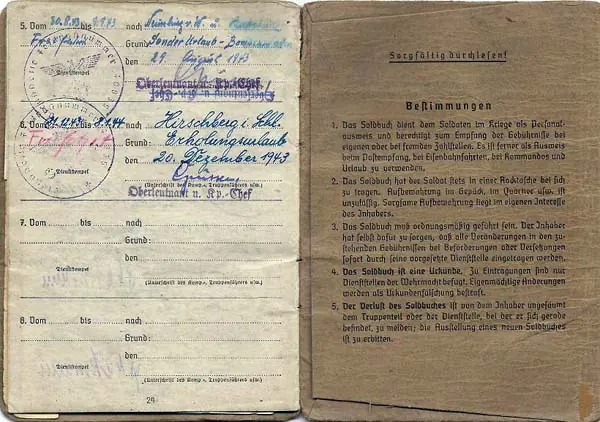 5. Vom 30.8.43 bis 9.9.43 nach Neuburg v. W. u.
Grund: Sonder Urlaub - Bomben
den 29. August 1943
Dienststempel
Oberleutnant u. Kp.-Chef
6. Vom 21.12.43 bis 8.1.44 nach Hirschberg i. Schl.
Grund: Erholungsurlaub
den 20. Dezember 1943
Dienststempel
(Unterschrift des Komp.-, Truppenführers usw.)
Oberleutnant u. Kp.-Chef
7. Vom bis nach
Grund:
den
Dienststempel
(Unterschrift des Komp.-, Truppenführers usw.)
8. Vom bis nach
Grund:
den
Dienststempel
(Unterschrift des Komp.-, Truppenführers usw.)
24
Sorgfältig durchlesen!
Bestimmungen
1. Das Soldbuch dient dem Soldaten im Kriege als Personal-
ausweis und berechtigt zum Empfang der Gebührnisse bei
eigenen oder bei fremden Zahlstellen. Es ist ferner als Ausweis
beim Postempfang, bei Eisenbahnfahrten, bei Kommandos und
Urlaub zu verwenden.
2. Das Soldbuch hat der Soldat stets in einer Rocktasche bei sich
zu tragen. Aufbewahrung im Gepäck, im Quartier usw. ist
unzulässig. Sorgsame Aufbewahrung liegt im eigenen Interesse
des Inhabers.
3. Das Soldbuch muß ordnungsmäßig geführt sein. Der Inhaber
hat selbst dafür zu sorgen, daß alle Veränderungen in den zu-
stehenden Gebührnissen bei Beförderungen oder Versetzungen
sofort durch die vorgesetzte Dienststelle eingetragen werden.
4. Das Soldbuch ist eine Urkunde. Zu Eintragungen sind nur
Dienststellen der Wehrmacht befugt. Eigenmächtige Änderungen
werden als Urkundenfälschung bestraft.
5. Der Verlust des Soldbuches ist von dem Inhaber ungesäumt
dem Truppenteil oder der Dienststelle, bei der er sich gerade
befindet, zu melden; die Ausstellung eines neuen Soldbuches ist
zu erbitten.